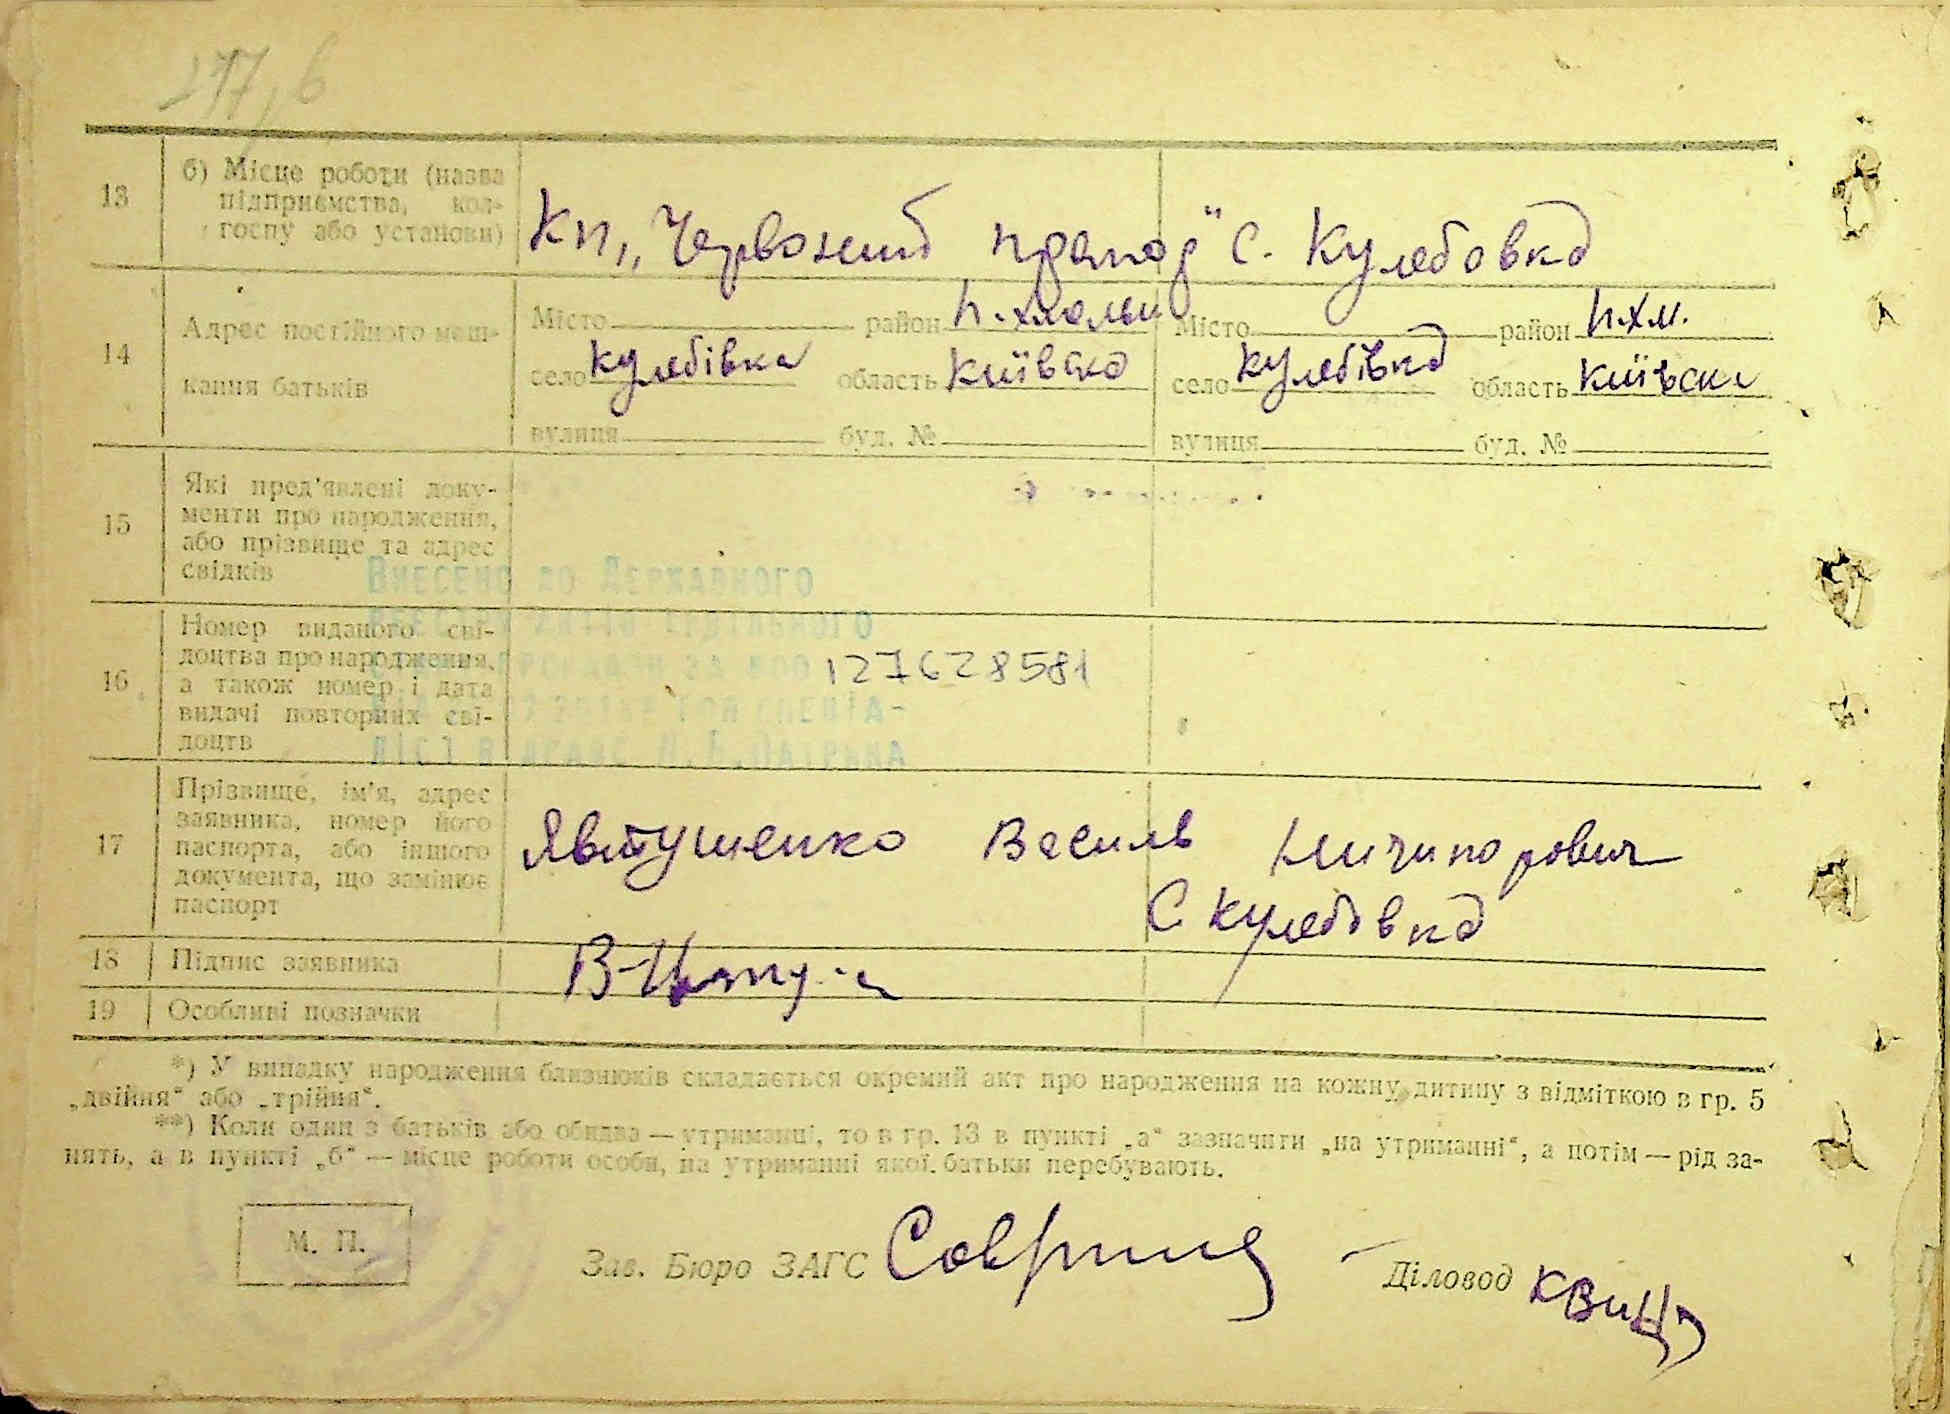 277, б
13 б) Місце роботи (назва
підприємства, кол-
госпу або установи)
Кп „Червоний прапор" с. Кулебовка
14 Адрес постійного меш-
кання батьків
Місто район п.хмельн Місто район п.хм.
село Кулебівка область Київська село Кулебівка область Київська
вулиця буд. № вулиця буд. №
15 Які пред'явлені доку-
менти про народження,
або прізвище та адрес
свідків
Внесено до Державного
127628581
16 Номер виданого сві-
доцтва про народження,
а також номер і дата
видачі повторних сві-
доцтв
17 Прізвище, ім'я, адрес
заявника, номер його
паспорта, або іншого
документа, що замінює
паспорт
Явтушенко Василь Ничипорович
с Кулебовка
18 Підпис заявника
19 Особливі позначки
*) У випадку народження близнюків складається окремий акт про народження на кожну дитину з відміткою в гр. 5
„двійня" або „трійня".
**) Коли один з батьків або обидва — утриманці, то в гр. 13 в пункті „а" зазначити „на утриманні", а потім — рід за-
нять, а в пункті „б" — місце роботи особи, на утриманні якої батьки перебувають.
М. П.
Зав. Бюро ЗАГС Діловод